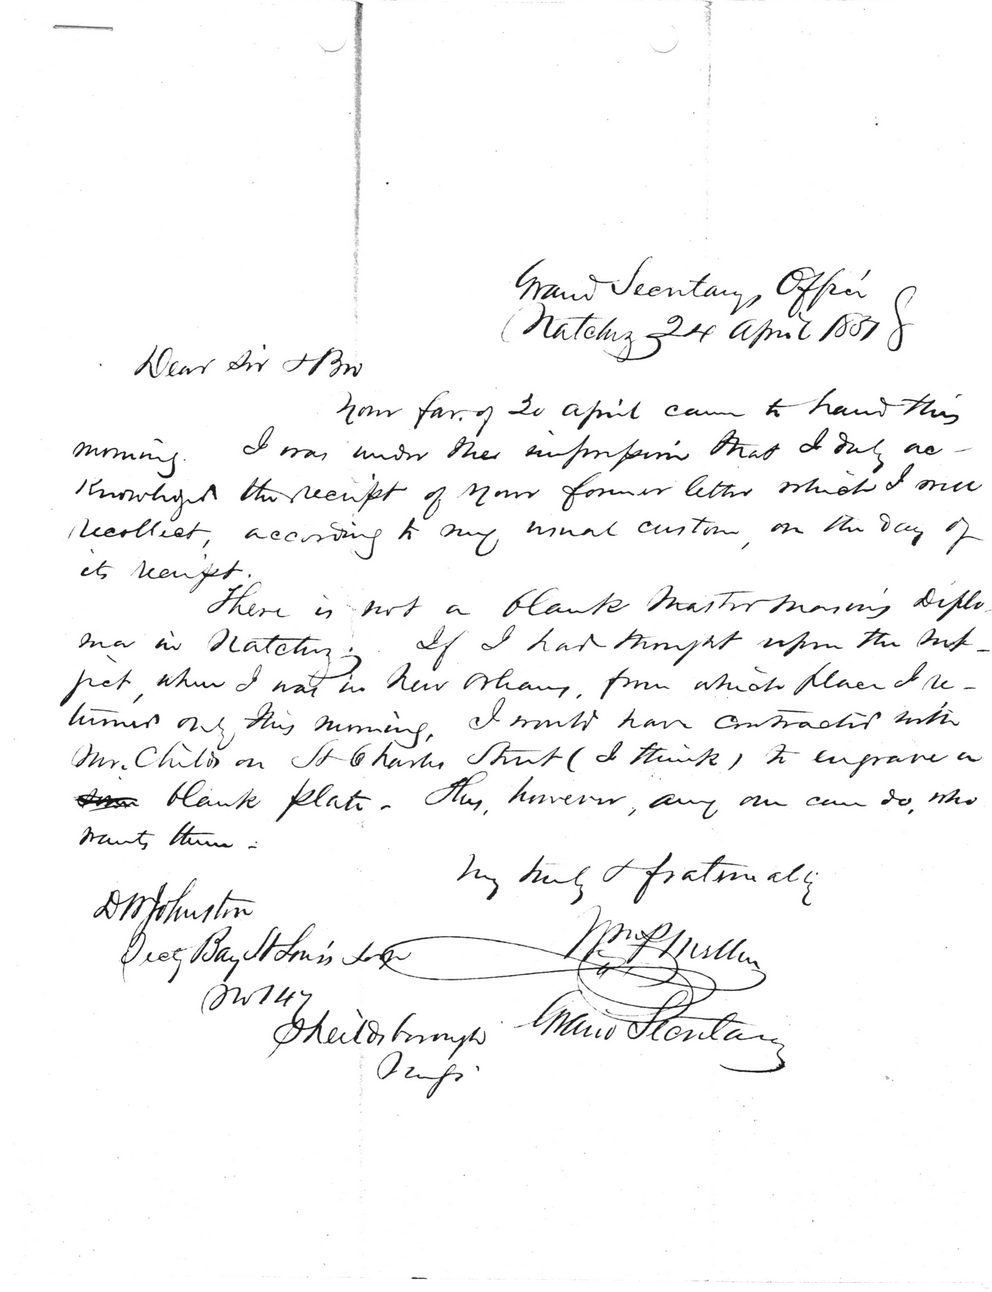 Grand Secretary's Office
Natchez 24 April 1851
Dear Sir & Bro
Your fav. of 20 April came to hand this
morning. I was under the impression that I duly ac-
knowledged the receipt of your former letter which I well
recollect, according to my usual custom, on the day of
its receipt.
There is not a blank Master Mason's Diplo-
ma in Natchez. If I had thought upon the sub-
ject, when I was in New Orleans, from which place I re-
turned only this morning, I would have contracted with
Mr. Childs on St Charles Street (I think) to engrave a
blank plate - This, however, any one can do, who
wants them -
truly & fraternally
D W Johnston
Wm P Mellen
Secty Bay St Louis Lodge
No 147
Grand Secretary
Sheildsborough
Miss